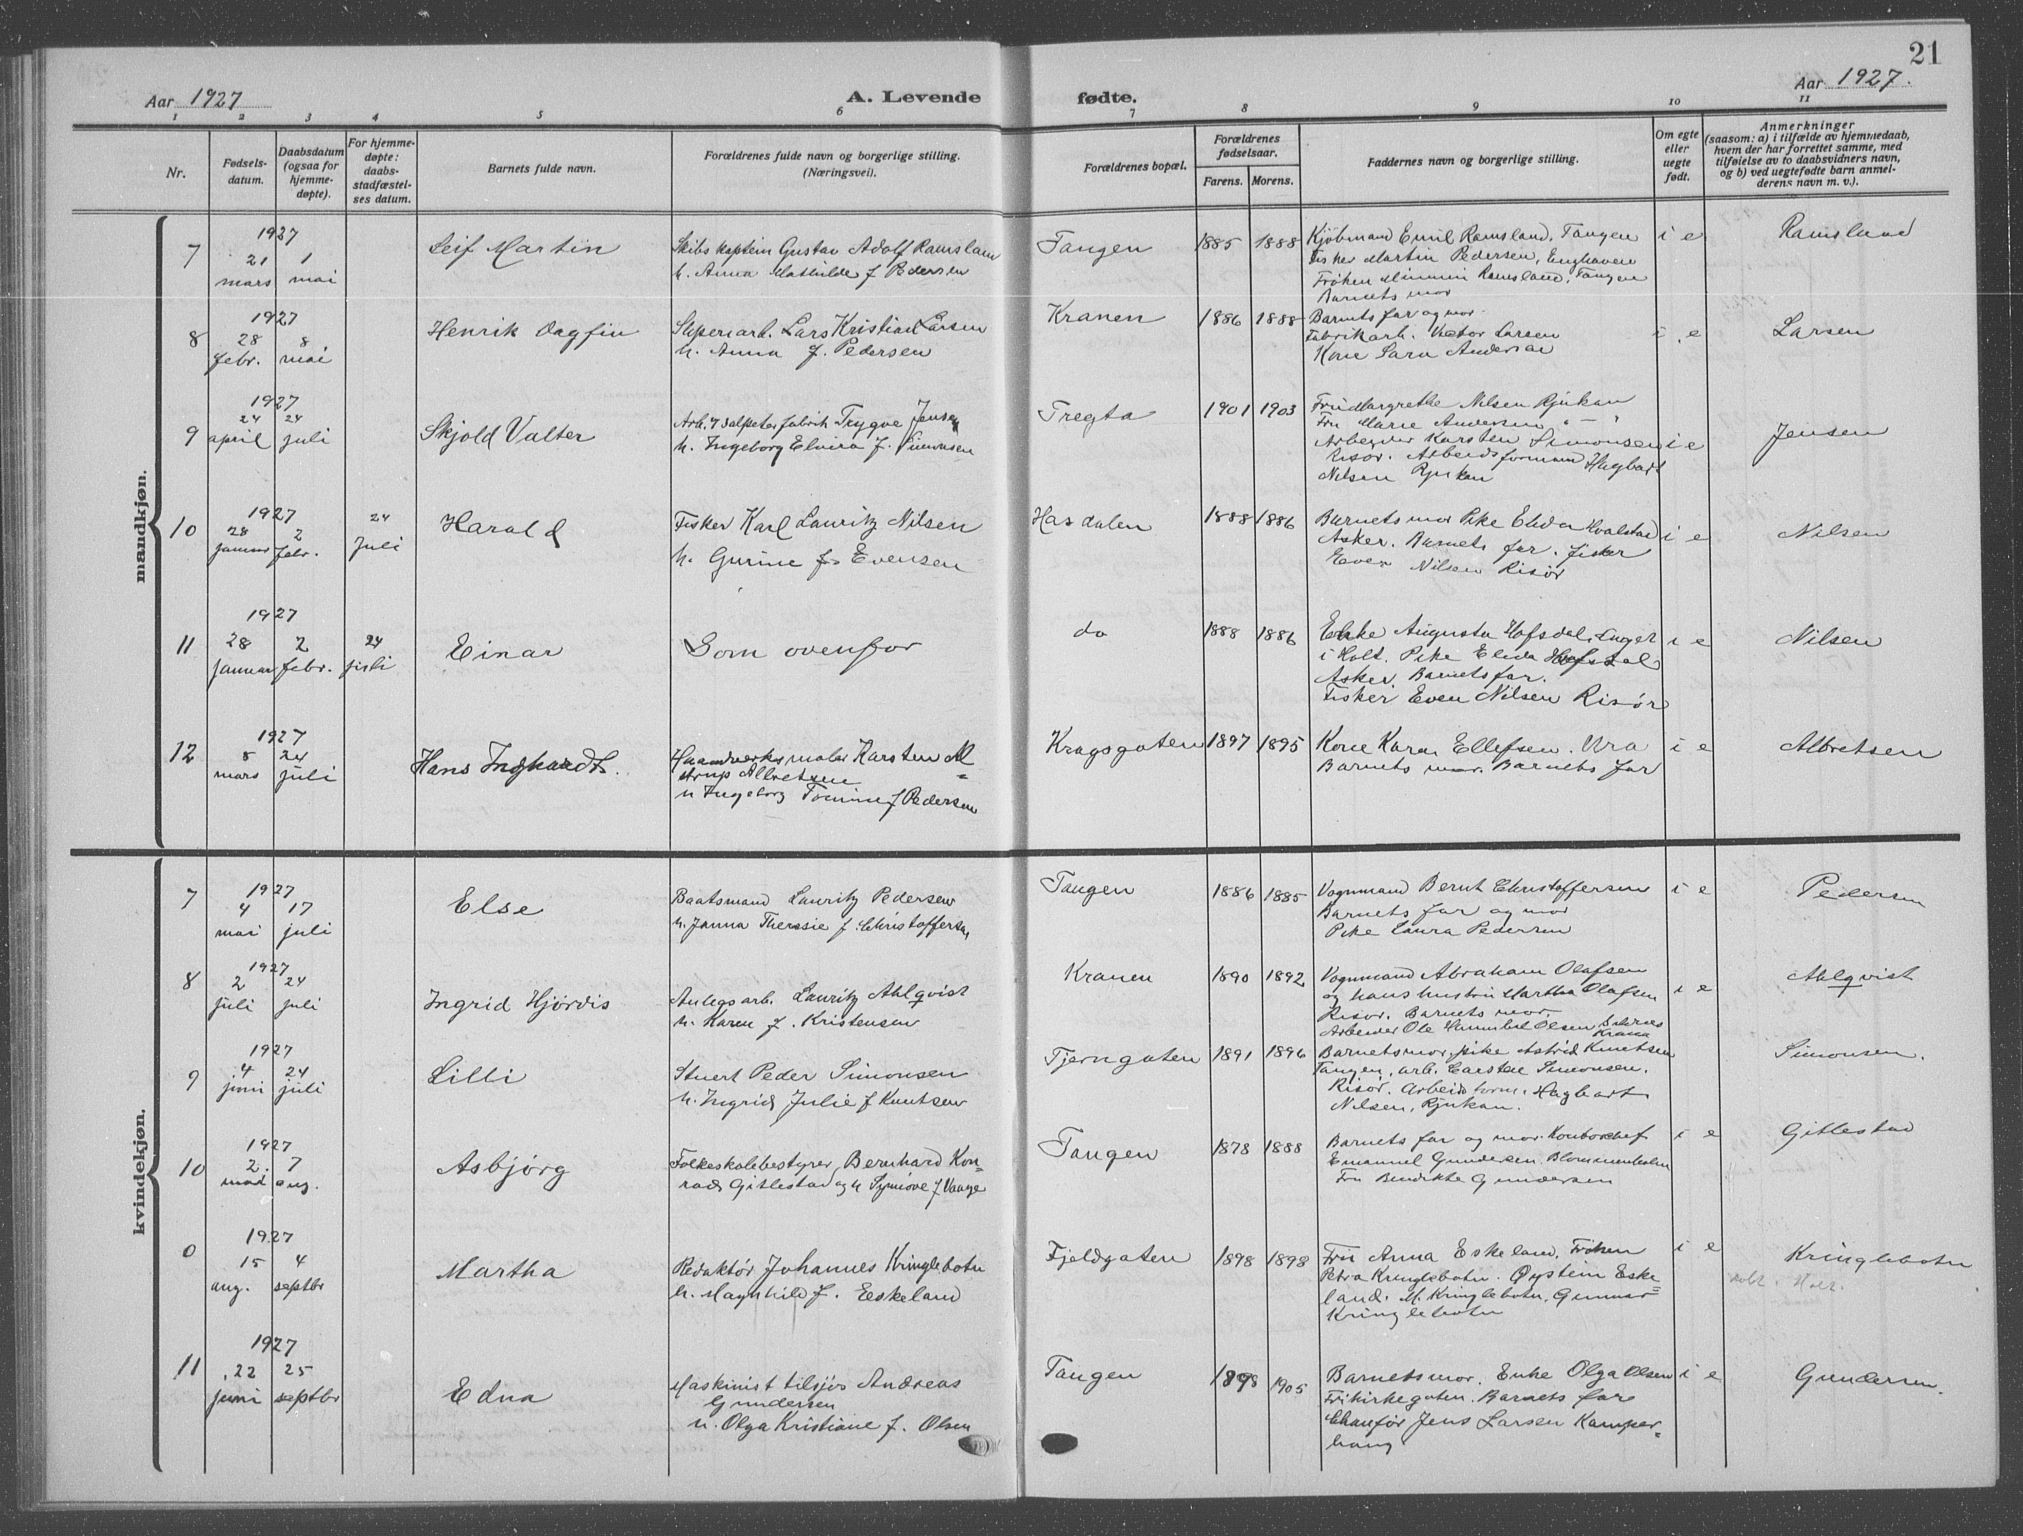 21
Aar 1927
A. Levende fødte.
Aar 1927.
1 2 3 4 5 6 7 8 9 10 11
Nr.
Fødsels-
datum.
Daabsdatum
(ogsaa for
hjemme-
døpte).
For hjemme-
døpte:
daabs-
stadfæstel-
ses datum.
Barnets fulde navn.
Forældrenes fulde navn og borgerlige stilling.
(Næringsvei).
Forældrenes bopæl.
Forældrenes
fødselsaar.
Farens. Morens.
Faddernes navn og borgerlige stilling.
Om egte
eller
uegte
født.
Anmerkninger
(saasom: a) i tilfælde av hjemmedaab,
hvem der har forrettet samme, med
tilføielse av to daabsvidners navn,
og b) ved uegtefødte barn anmel-
derens navn m. v.).
mandkjøn.
7
1927
21 1
mars mai
Leif Martin
Skibskaptein Gustav Adolf Ramsland
h. Anna Mathilde f Pedersen
Tangen
1885 1888
Kjøbmand Emil Ramsland, Tangen
Fisker Martin Pedersen, Enghaven
Frøken Mimmi Ramsland, Tangen
Barnets mor
i e
Ramsland
8
1927
28 8
febr. mai
Henrik Dagfin
Sliperiarb. Lars Kristian Larsen
h. Anna f. Pedersen
Kranen
1886 1888
Barnets far og mor
Fabrikarb. Victor Larsen
Kone Sara Andersen
i e
Larsen
9
1927
24 24
april juli
Skjold Valter
Arb. v salpeterfabrik Trygve Jensen
h. Ingeborg Elvira f. Simonsen
Tregta
1901 1903
Fru Margrethe Nilsen Rjukan
Fru Marie Andersen " — "
Arbeider Karsten Simonsen
Risør. Arbeidsformand Hagbart
Nilsen Rjukan
i e
Jensen
10
1927
28 2 24
januar febr. Juli
Harald
Fisker Karl Lauritz Nilsen
h. Gurine f. Evensen
Hasdalen
1888 1886
Barnets mor Pike Elida
Asker. Barnets far. fisker
Even Nilsen Risør
i e
Nilsen
11
1927
28 2 24
januar febr. juli
Einar
Som ovenfor
do
1888 1886
Enke Augusta Hofsdal,
i Holt. Pike Elida
Asker. Barnets far.
Fisker Even Nilsen Risør
i e
Nilsen
12
1927
8 24
mars juli
Hans Inghardt.
Haandverksmaler Karsten Al=
strup Albretsen
h Ingeborg Tomine f Pedersen
Kragsgaten
1897 1895
Kone Karen Ellefsen. Ura
Barnets mor. Barnets far
i e
Albretsen
kvindekjøn.
7
1927
4 17
mai juli
Else
Baatsmand Lauritz Pedersen
h. Janna Theresie f. Christoffersen
Tangen
1886 1885
Vognmand Bernt Christoffersen
Barnets far og mor
Pike Laura Pedersen
i e
Pedersen
8
1927
2 24
juli juli
Ingrid Hjørdis
Anlegsarb. Lauritz Ahlqvist
h. Karen f. Kristensen
Kranen
1890 1892
Vognmand Abraham Olafsen
og hans hustru Martha Olafsen
Risør. Barnets mor.
Arbeider Ole Olsen
i e
Ahlqvist
9
1927
4 24
juni juli
Lilli
Stuert Peder Simonsen
h. Ingrid Julie f Knutsen
Tjerngaten
1891 1896
Barnets mor, pike Astrid Knutsen
Tangen, arb. Carsten Simonsen.
Risør. Arbeidsform. Hagbart
Nilsen, Rjukan.
Simonsen.
10
1927
2. 7
mai aug.
Asbjørg
Folkeskolebestyrer Bernhard Kon=
rad Gitlestad og h Synnove f Vaage
Tangen
1878 1888
Barnets far og mor. Kontorchef
Emanuel Gundersen. Blommenholm
Fru Bendikte Gundersen
i e
Gitlestad
0
1927
15 4
aug. septbr
Martha
Redaktør Johannes Kringlebotn
h. Magnhild f. Eskeland
Fjeldgaten
1898 1898
Fru Anna Eskeland. Frøken
Petra Kringlebotn. Øystein Eske
land. M. Kringlebotn, Gunnar
Kringlebotn
i e
Kringlebotn
11
1927
22 25
juni septbr
Edna
Maskinist tilsjøs Andreas
Gundersen
h. Olga Kristiane f. Olsen
Tangen
1898 1905
Barnets mor. Enke Olga Olsen
Frikirkegaten. Barnets far
Chaufør Jens Larsen Kamper=
haug
i e
Gundersen.